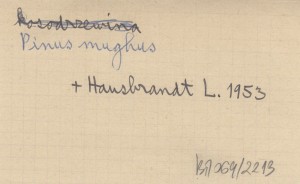 kosodrzewina
Pinus mughus
+ Hausbrandt L. 1953
BA069/2213